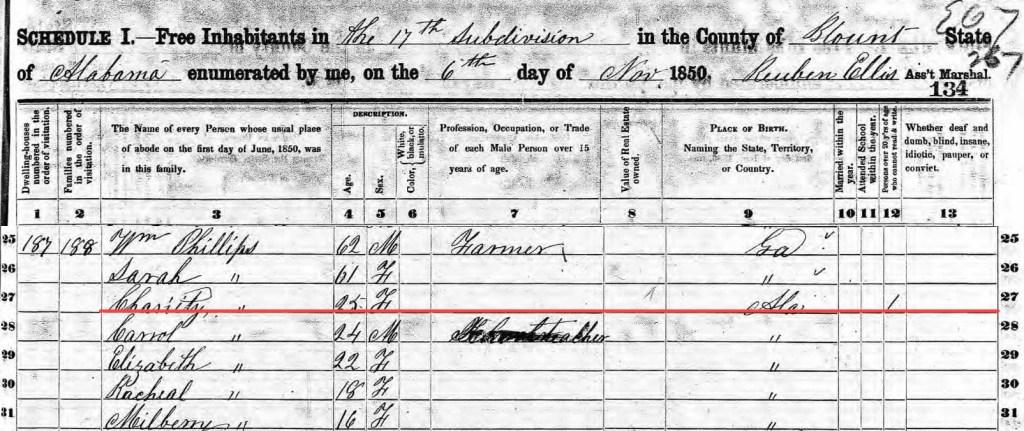 567
SCHEDULE I.—Free Inhabitants in the 17th Subdivision in the County of Blount State
267
of Alabama enumerated by me, on the 6th day of Nov 1850. Reuben Ellis Ass't Marshal.
134
Dwelling-houses numbered in the order of visitation.
Families numbered in the order of visitation.
The Name of every Person whose usual place of abode on the first day of June, 1850, was in this family.
DESCRIPTION.
Age.
Sex.
Color, White, black, or mulatto.
Profession, Occupation, or Trade of each Male Person over 15 years of age.
Value of Real Estate owned.
PLACE OF BIRTH. Naming the State, Territory, or Country.
Married within the year.
Attended School within the year.
Persons over 20 y'rs of age who cannot read & write.
Whether deaf and dumb, blind, insane, idiotic, pauper, or convict.
1 2 3 4 5 6 7 8 9 10 11 12 13
25 187 188 Wm Phillips 62 M Farmer Ga 25
26 Sarah " 61 F " 26
27 Charity " 25 F Ala 1 27
28 Carrol " 24 M " 28
29 Elizabeth " 22 F " 29
30 Racheal " 18 F " 30
31 Milberry " 16 F " 31